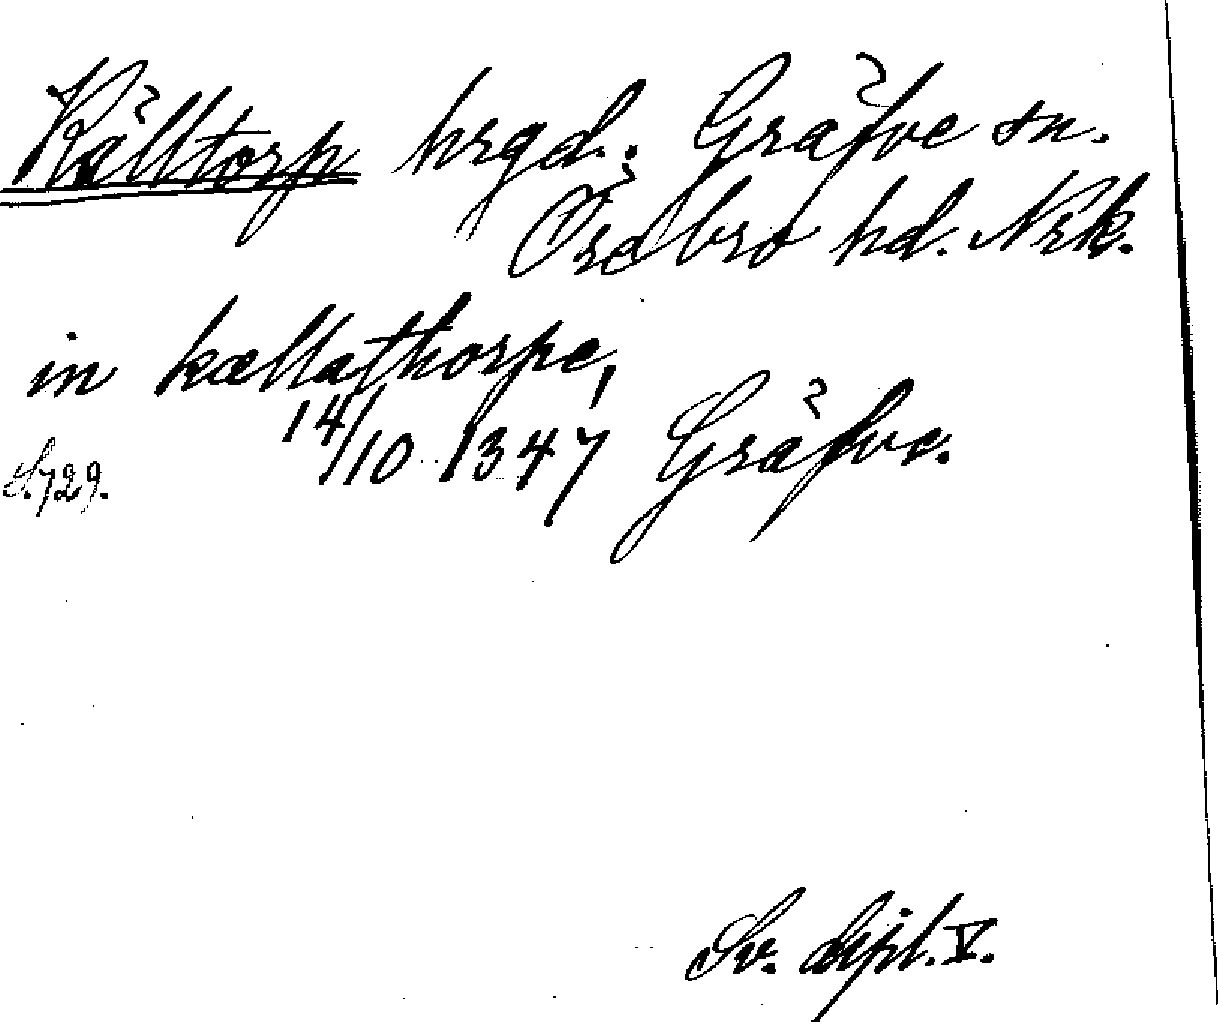 Källtorp hrgd. Gräfve sn.
Örebro hd. Nrk.
in kællathorpe,
14/10 1347 Gräfve.
S. 729.
Sv. dipl. V.